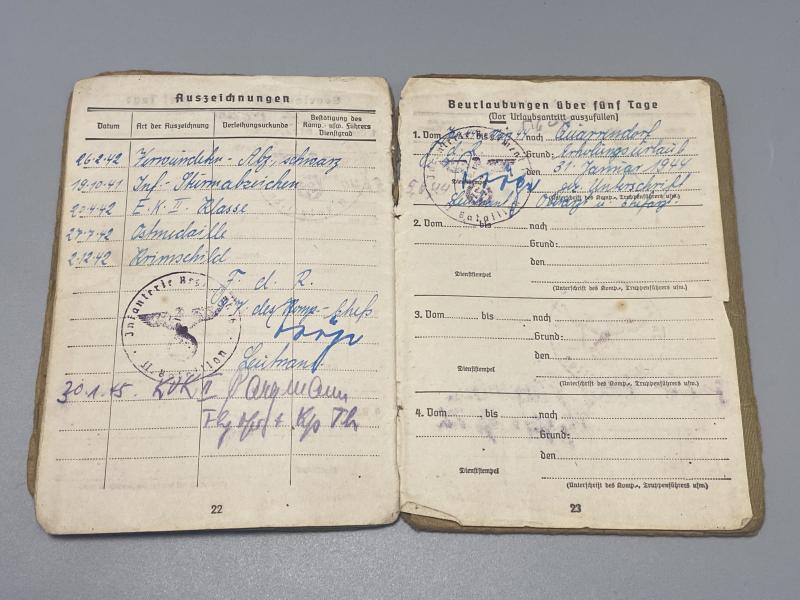 Auszeichnungen
Datum Art der Auszeichnung Verleihungsurkunde Bestätigung des Komp.- usw. Führers Dienstgrad
26.2.42 Verwundeten-Abz. schwarz
19.10.41 Inf.-Sturmabzeichen
20.4.42 E.K. II. Klasse
27.7.42 Ostmedaille
2.12.42 Krimschild
F. d. R.
des Komp.-Chefs
Leutnant
Infanterie
Bataillon
30.1.45. KVK II
22
Beurlaubungen über fünf Tage
(Vor Urlaubsantritt auszufüllen)
1. Vom bis nach Quarrendorf
Grund: Erholungsurlaub
den 31 Januar 1944
gez. Unterschrift
Dienststempel
(Unterschrift des Komp., Truppenführers usw.)
Leutnant
Bataillon
2. Vom bis nach
Grund:
den
Dienststempel
(Unterschrift des Komp., Truppenführers usw.)
3. Vom bis nach
Grund:
den
Dienststempel
(Unterschrift des Komp., Truppenführers usw.)
4. Vom bis nach
Grund:
den
Dienststempel
(Unterschrift des Komp., Truppenführers usw.)
23